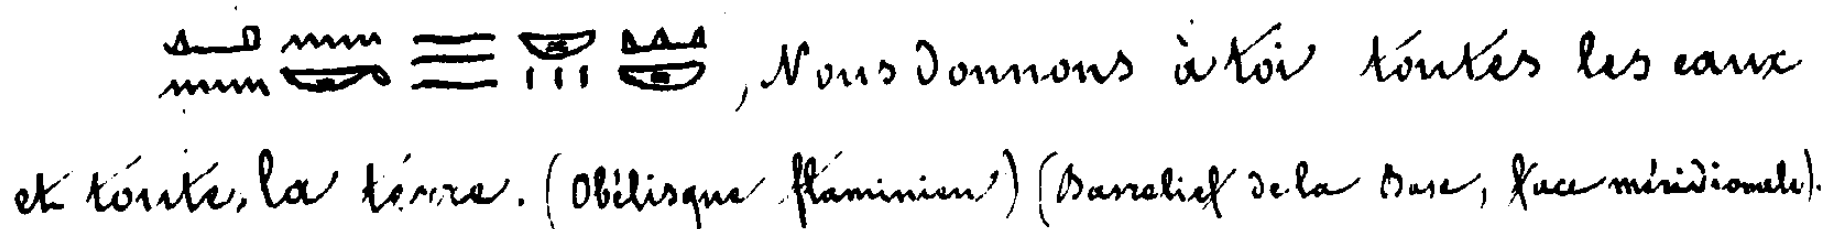 , Nous donnons à toi toutes les eaux
et toute, la terre. (Obélisque flaminien) (Basrelief de la Base, face méridionale).